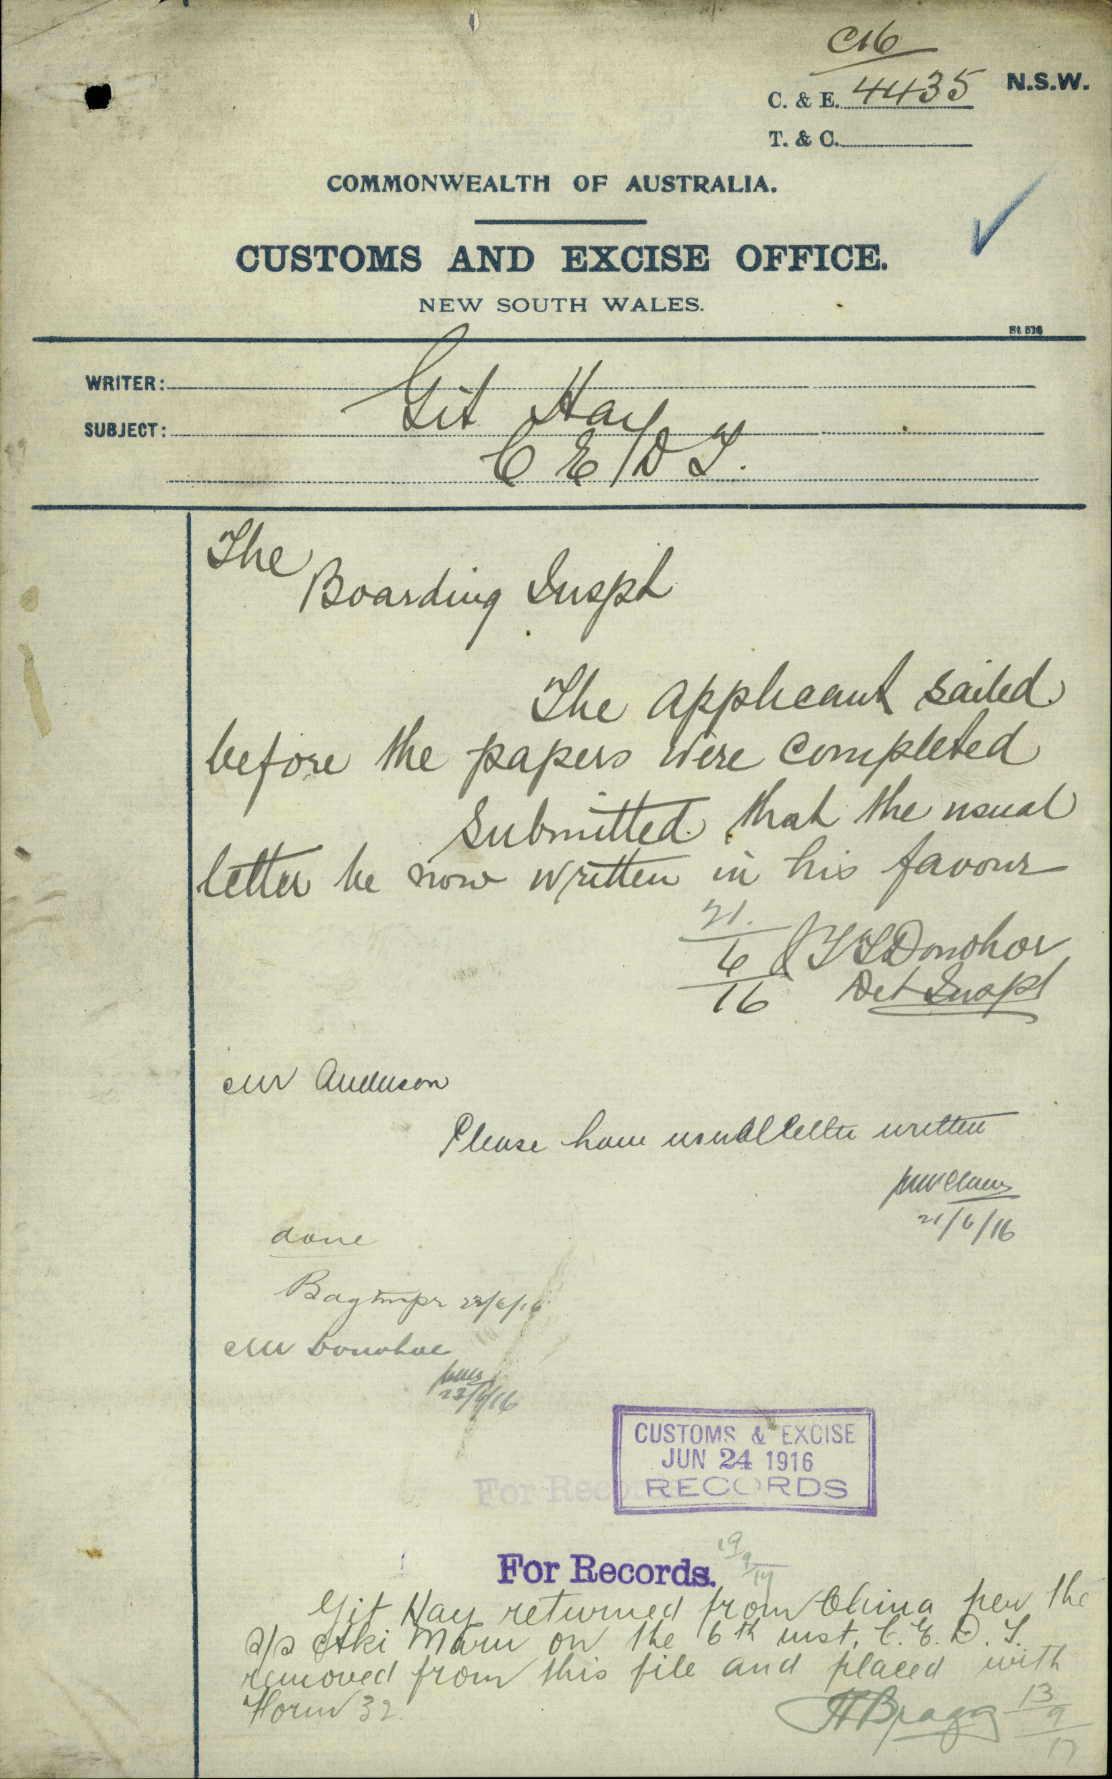 C16
C. & E. 4435 N.S.W.
T. & C.
COMMONWEALTH OF AUSTRALIA.
CUSTOMS AND EXCISE OFFICE.
NEW SOUTH WALES.
WRITER:
Git Hay
SUBJECT:
C E D T.
The
Boarding Inspt
The applicant sailed
before the papers were completed
Submitted that the usual
letter be now written in his favour
21.
6
16
Donohoe
Det Inspt
Mr Anderson
Please have usual letter written
21/6/16
done
22/6/16
Mr Donohoe
23/6/16
CUSTOMS & EXCISE
JUN 24 1916
RECORDS
For Records
For Records.
19
9
17
Git Hay returned from China per the
s/s Aki Maru on the 6th inst. C. E. D. T.
removed from this file and placed with
Form 32.
Bragg
13
9
17